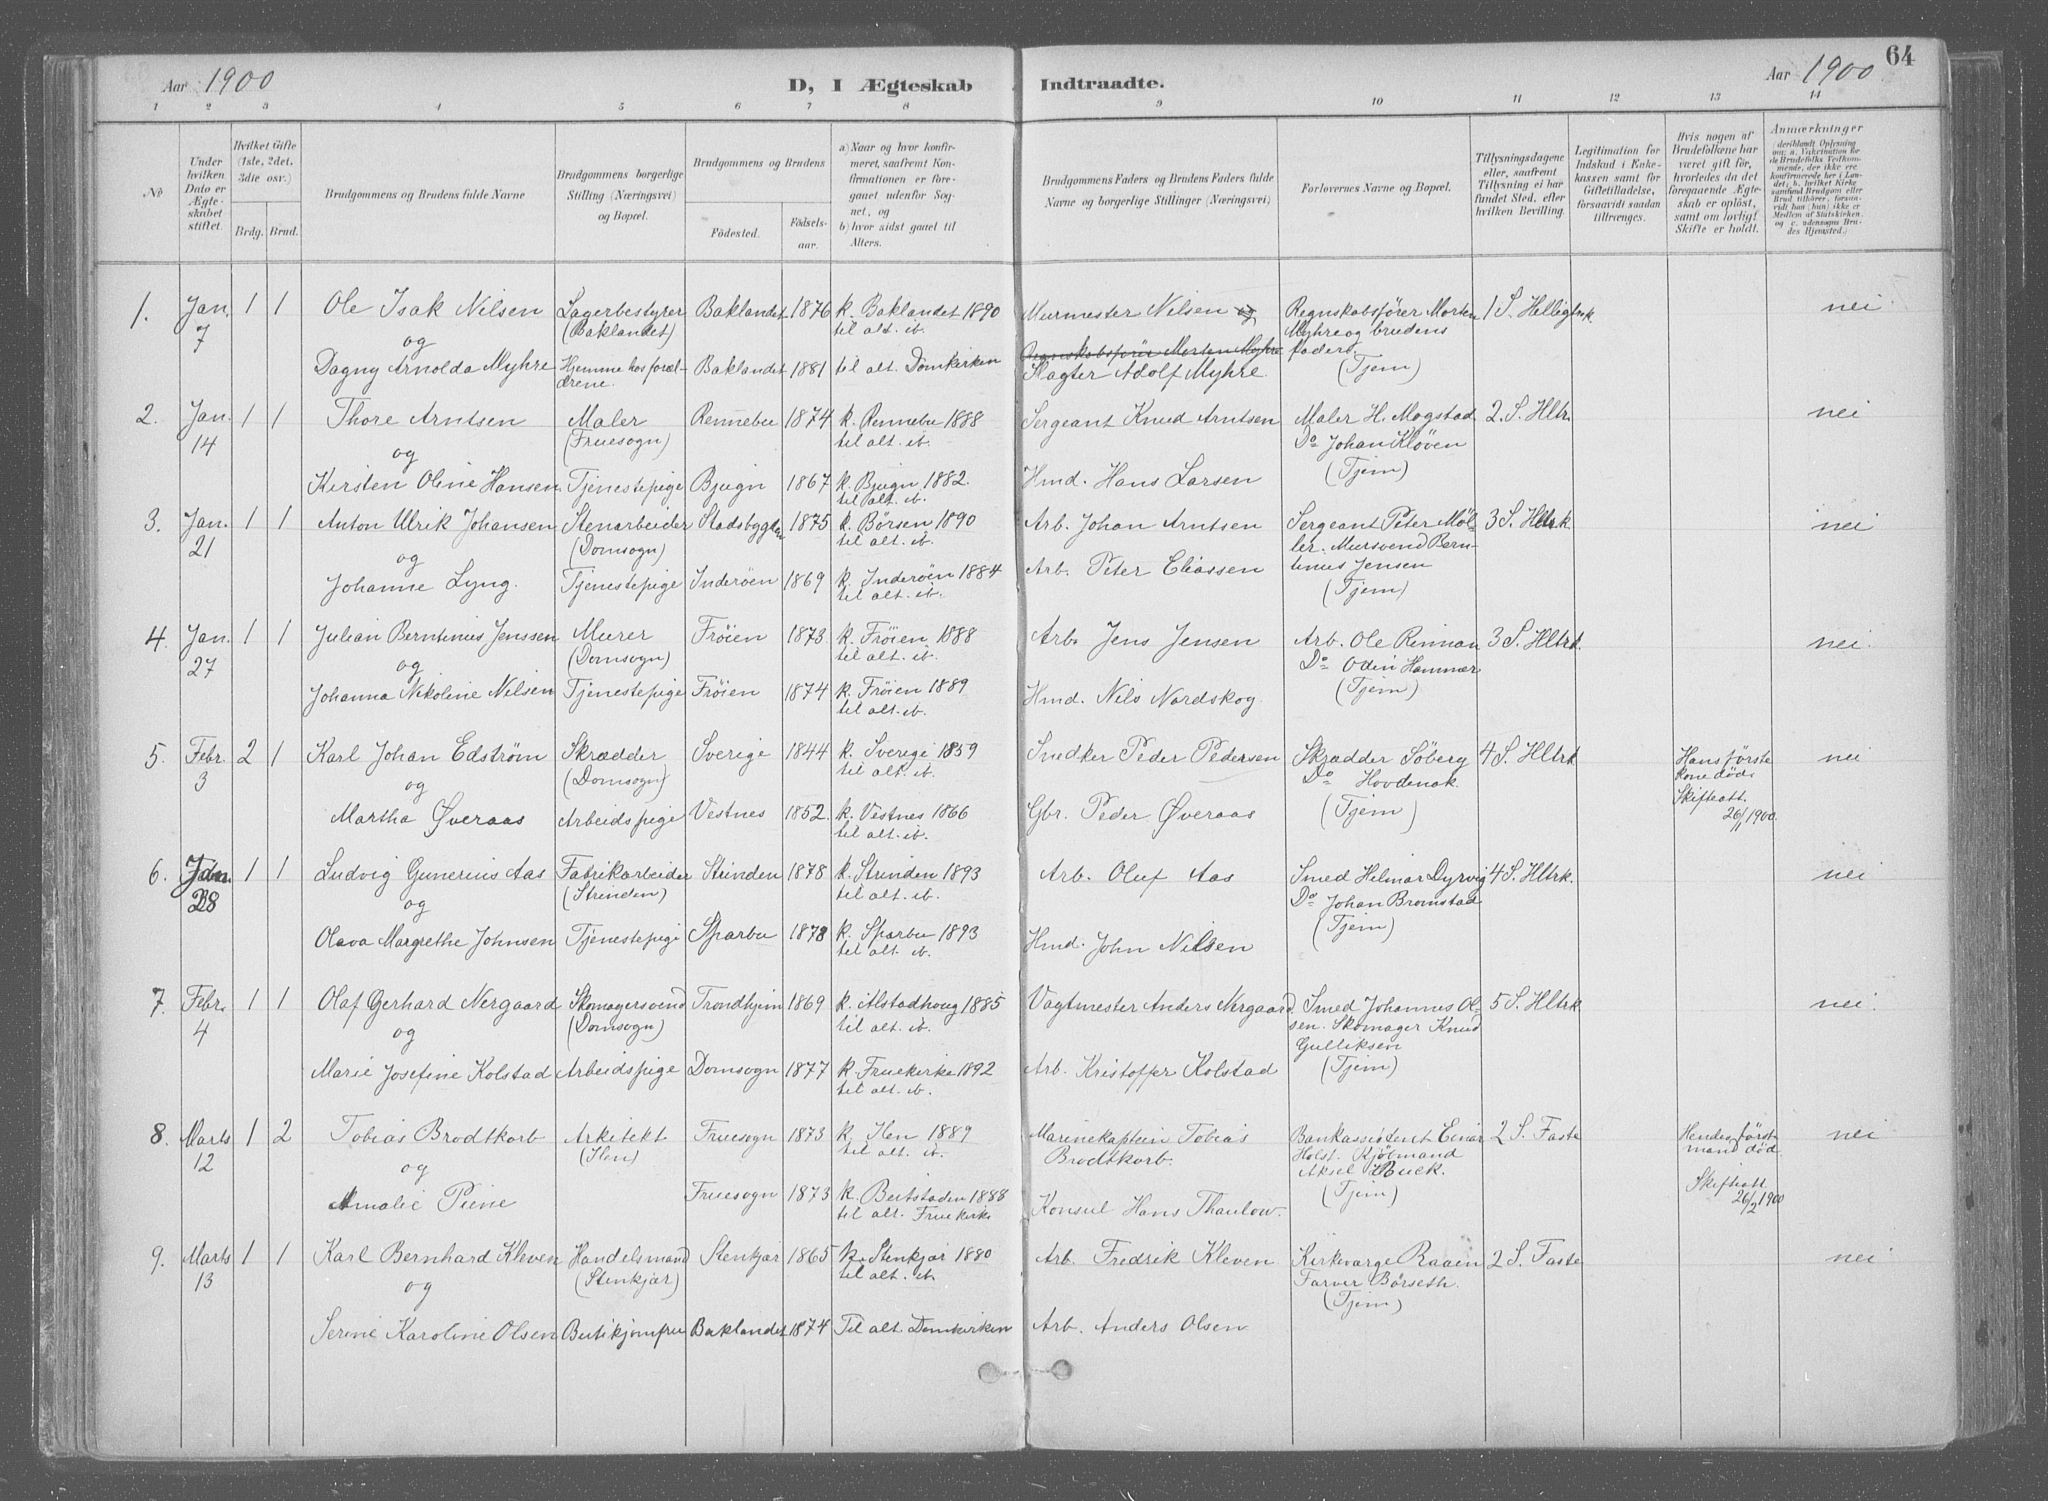 64
Aar 1900 D, I Ægteskab Indtraadte. Aar 1900
1 2 3 4 5 6 7 8 9 10 11 12 13 14
No
Under hvilken Dato er Ægteskabet stiftet.
Hvilket Gifte (1ste, 2det, 3die osv.)
Brdg. Brud.
Brudgommens og Brudens fulde Navne
Brudgommens borgerlige Stilling (Næringsvei) og Bopæl.
Brudgommens og Brudens
Födested. Födselsaar.
a) Naar og hvor konfirmeret, saafremt Konfirmationen er foregaaet udenfor Sognet, og
b) hvor sidst gaaet til Alters.
Brudgommens Faders og Brudens Faders fulde Navne og borgerlige Stillinger (Næringsvei)
Forlovernes Navne og Bopæl.
Tillysningsdagene eller, saafremt Tillysning ei har fundet Sted, efter hvilken Bevilling.
Legitimation for Indskud i Enkekassen samt for Giftetilladelse, forsaavidt saadan tiltrænges.
Hvis nogen af Brudefolkene har været gift før, hvorledes da det foregaaende Ægteskab er oplöst, samt om lovligt Skifte er holdt.
Anmærkninger
1. Jan. 7 1 1 Ole Isak Nilsen Lagerbestyrer (Baklandet) Baklandet 1876 k. Baklandet 1890 til alt. ib. Murmester Nilsen og Regnskabsfører Morten Myhre og brudens fader. (Tjem) 1 S. Helligtrk nei
og
Dagny Arnolda Myhre Hjemme hos forældrene. Baklandet 1881 til alt. Domkirken Regnskabsfører Morten Myhre Slagter Adolf Myhre.
2. Jan. 14 1 1 Thore Arntsen Maler (Fruesogn) Rennebu 1874 k. Rennebu 1888 til alt. ib. Sergeant Knud Arntsen Maler H. Mogstad Do Johan Kløven (Tjem) 2. S. Hltr. nei
og
Kirsten Oline Hansen. Tjenestepige Bjugn 1867 k. Bjugn 1882. til alt. ib. Hmd. Hans Larsen
3. Jan. 21 1 1 Anton Ulrik Johansen Stenarbeider (Domsogn) Stadsbygden 1875 k. Børsen 1890 til alt. ib. Arb. Johan Arntsen Sergeant Peter Møller. Mursvend Berntinus Jensen (Tjem) 3 S. Hltrk. nei
og
Johanne Lyng. Tjenestepige Inderøen 1869 k. Inderøen 1884 til alt. ib. Arb. Peter Eliassen
4. Jan. 27 1 1 Julian Berntinus Jenssen Murer (Domsogn) Frøien 1873 k. Frøien 1888 til alt. ib. Arb. Jens Jensen Arb. Ole Rinnan Do Odin Hammer (Tjem) 3 S. Hltrk. nei.
og
Johanna Nikoline Nilsen Tjenestepige Frøien 1874 k. Frøien 1889 til alt. ib. Hmd. Nils Nordskog.
5. Febr. 3 2 1 Karl Johan Edstrøm Skrædder (Domsogn) Sverige 1844 k. Sverige 1859 til alt. ib. Snedker Peder Pedersen Skrædder Söberg Do Hovdenak. (Tjem) 4 S. Hltrk Hans første kone død. Skifteatt. 26/1 1900. nei
og
Martha Øveraas Arbeidspige Vestnes 1852. k. Vestnes 1866 til alt. ib. Gbr. Peder Øveraas
6. Jan. 28 1 1 Ludvig Gunerius Aas Fabrikarbeider (Strinden) Strinden 1878 k. Strinden 1893 til alt. ib. Arb. Oluf Aas Smed Hilmar Dyrvig Do Johan Bromstad (Tjem) 4 S. Hltrk. nei
og
Olava Margrethe Johnsen Tjenestepige Sparbu 1878 k. Sparbu 1893 til alt. ib. Hmd. John Nilsen
7. Febr. 4 1 1 Olaf Gerhard Nergaard Skomagersvend (Domsogn) Trondhjem 1869 k. Alstadhoug 1885 til alt. ib. Vagtmester Anders Nergaard. Smed Johannes Olsen. Skomager Knud Gulliksen (Tjem) 5 S. Hltrk nei.
og
Marie Josefine Kolstad Arbeidspige Domsogn 1877 k. Fruekirke 1892 til alt. ib. Arb. Kristoffer Kolstad
8. Marts 12 1 2 Tobias Brodtkorb Arkitekt (Ilen) Fruesogn 1873 k. Ilen 1889 til alt. ib. Marinekaptein Tobias Brodtkorb. Bankassistent Einar Holst. Kjøbmand Aksel Huck. (Tjem) 2 S. Faste Hendes først mand død. Skifteatt. 26/2 1900 nei
og
Amalie Piene Fruesogn 1873 k. Beitstaden 1888 til alt. Fruekirke Konsul Hans Thaulow.
9. Marts 13 1 1 Karl Bernhard Kleven Handelsmand (Stenkjær) Stenkjær 1865 k. Stenkjær 1880 til alt. ib. Arb. Fredrik Kleven Kirkeværge Raaen Farver Börseth. (Tjem) 2 S. Faste nei
og
Serine Karoline Olsen Butikjomfru Baklandet 1874 Til alt. Domkirken Arb. Anders Olsen